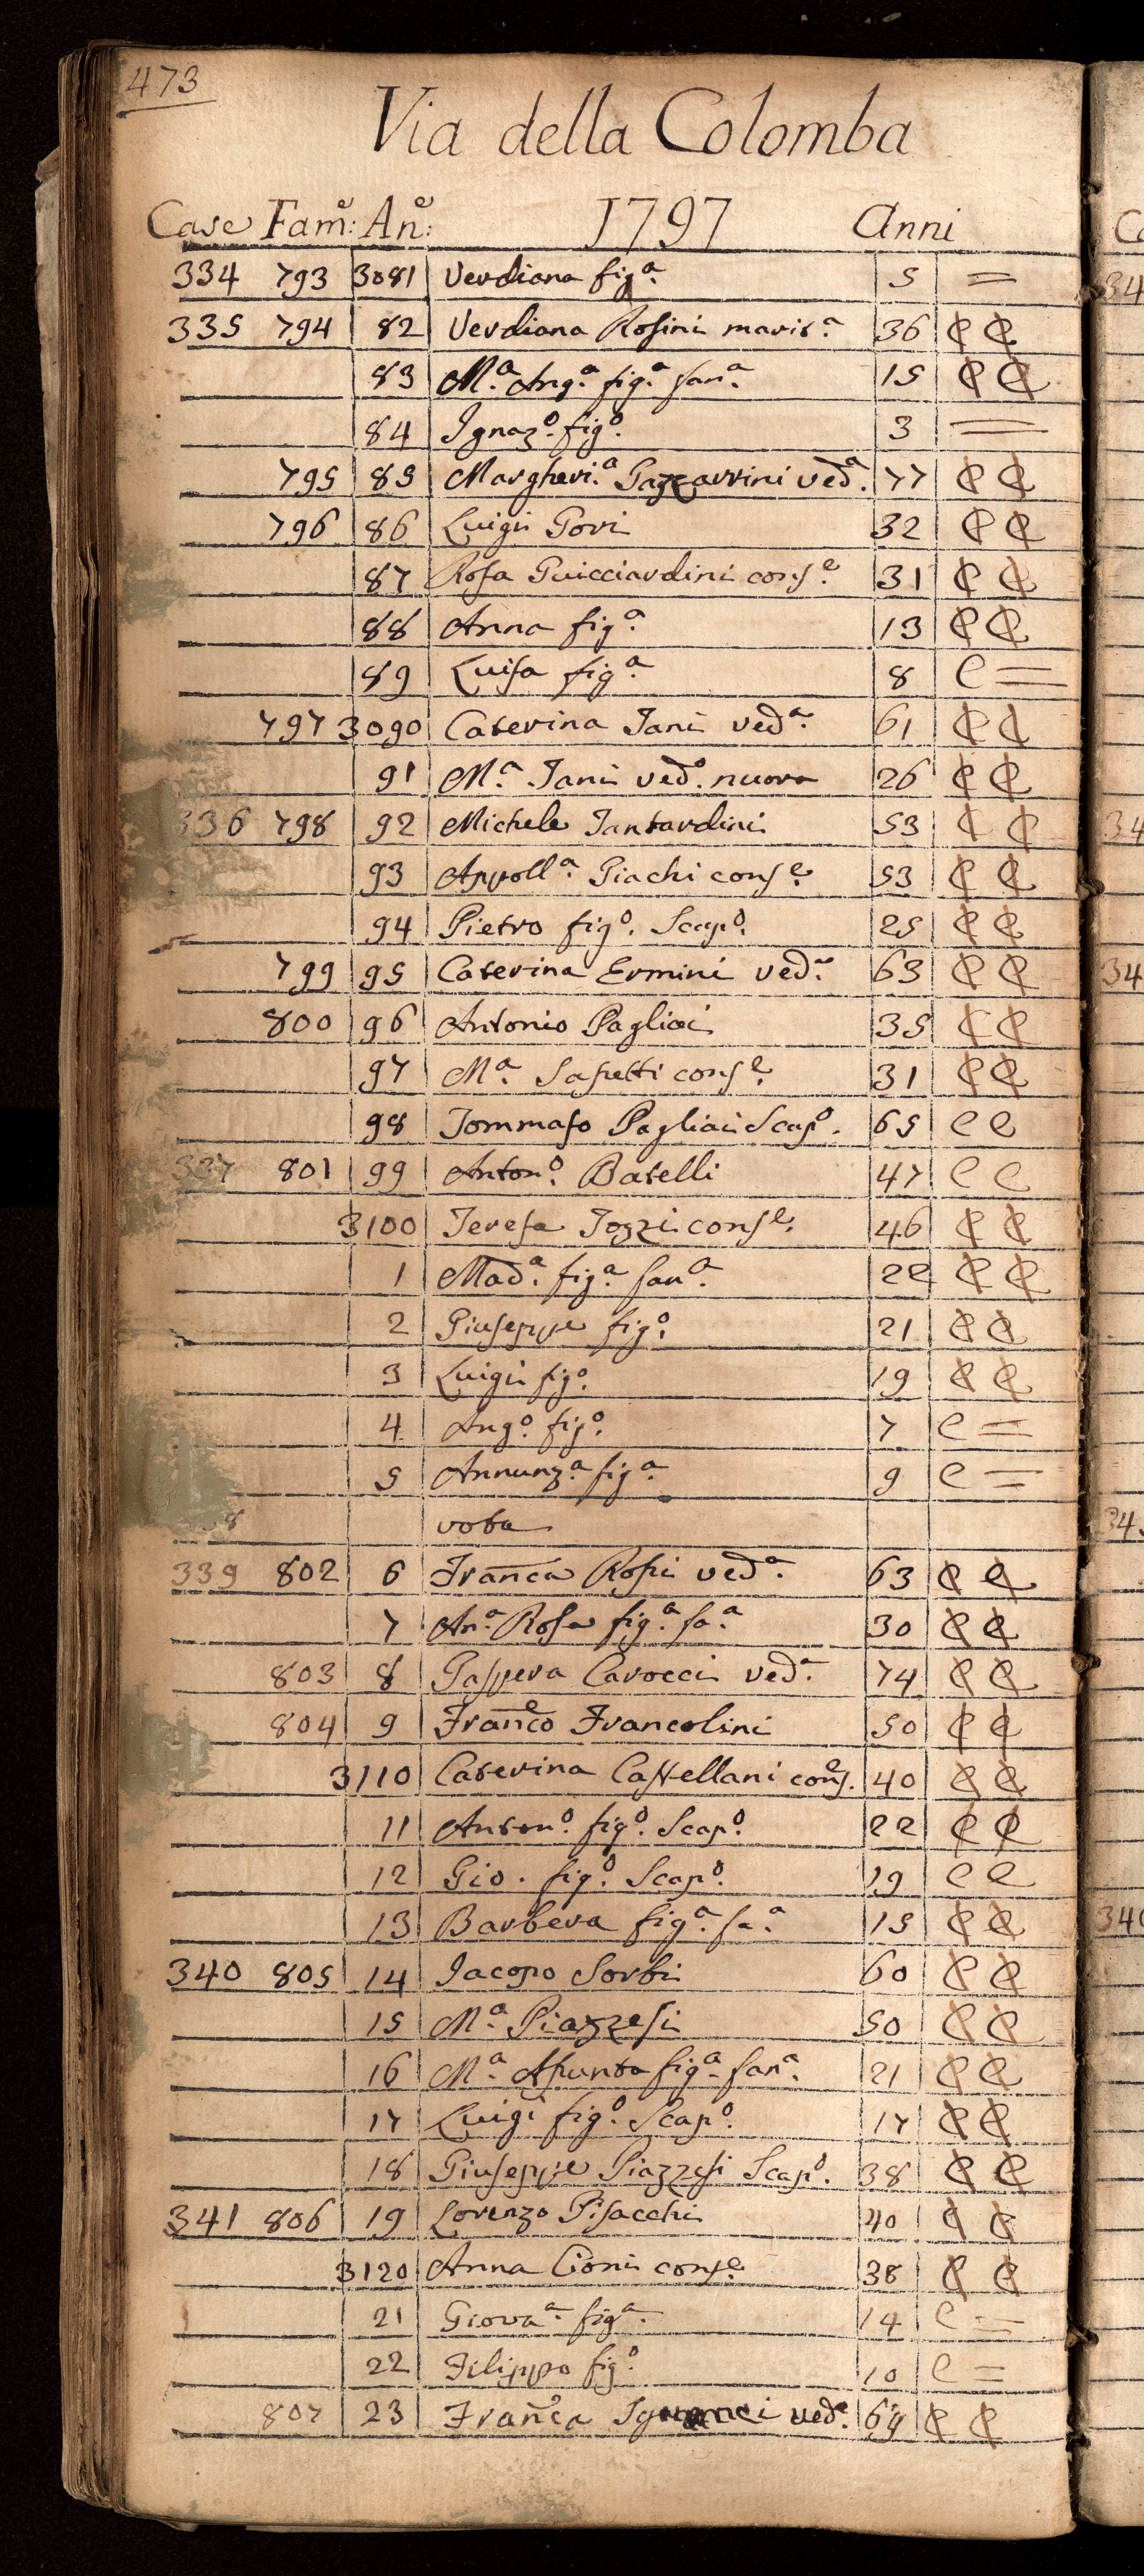 473
Via della Colomba
Case Fam.e: An.e: 1797 Anni
334 793 3081 Verdiana fig.a 5 =
335 794 82 Verdiana Rosini marit.a 36 C C
83 M.a Ang.a fig.a fan.a 15 C C
84 Ignaz.o fig.o 3 =
795 85 Margheri.a Gazzarrini ved.a 77 C C
796 86 Luigi Gori 32 C C
87 Rosa Guicciardini cons.e 31 C C
88 Anna fig.a 13 C C
89 Luisa fig.a 8 C =
797 3090 Caterina Tani ved.a 61 C C
91 M.a Tani ved.a nuora 26 C C
336 798 92 Michele Tantardini 53 C C
93 Appoll.a Giachi cons.e 53 C C
94 Pietro fig.o Scap.o 25 C C
799 95 Caterina Ermini ved.a 63 C C
800 96 Antonio Pagliai 35 C C
97 M.a Sapetti cons.e 31 C C
98 Tommaso Pagliai Scap.o 65 C C
337 801 99 Anton.o Batelli 47 C C
3100 Teresa Tozzi cons.e 46 C C
1 Mad.a fig.a fan.a 22 C C
2 Giuseppe fig.o 21 C C
3 Luigi fig.o 19 C C
4 Ang.o fig.o 7 C =
5 Annunz.a fig.a 9 C =
338 vota
339 802 6 Fran.ca Rosi ved.a 63 C C
7 An.a Rosa fig.a fa.a 30 C C
803 8 Gaspera Carocci ved.a 74 C C
804 9 Fran.co Francolini 50 C C
3110 Caterina Castellani cons.e 40 C C
11 Anton.o fig.o Scap.o 22 C C
12 Gio. fig.o Scap.o 19 C C
13 Barbera fig.a fa.a 15 C C
340 805 14 Iacopo Sorbi 60 C C
15 M.a Piazzesi 50 C C
16 M.a Assunta fig.a fan.a 21 C C
17 Luigi fig.o Scap.o 17 C C
18 Giuseppe Piazzesi Scap.o 38 C C
341 806 19 Lorenzo Pisacchi 40 C C
3120 Anna Cioni cons.e 38 C C
21 Giova.a fig.a 14 C =
22 Filippo fig.o 10 C =
807 23 Fran.ca ved.a 64 C C